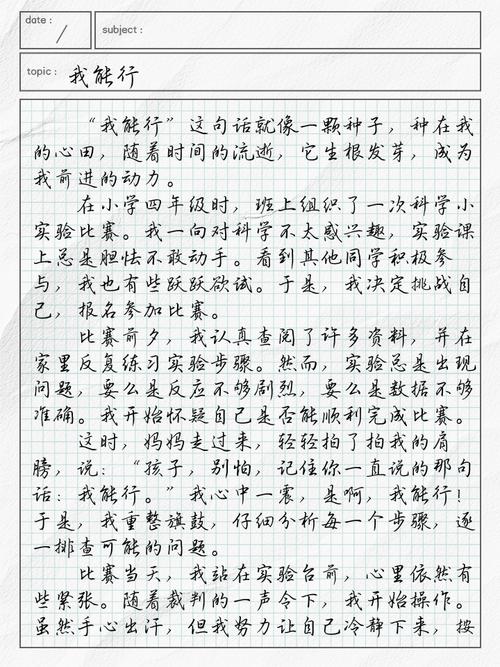 date :
subject :
topic : 我能行
“我能行”这句话就像一颗种子，种在我
的心田，随着时间的流逝，它生根发芽，成为
我前进的动力。
在小学四年级时，班上组织了一次科学小
实验比赛。我一向对科学不太感兴趣，实验课
上总是胆怯不敢动手。看到其他同学积极参
与，我也有些跃跃欲试。于是，我决定挑战自
己，报名参加比赛。
比赛前夕，我认真查阅了许多资料，并在
家里反复练习实验步骤。然而，实验总是出现
问题，要么是反应不够剧烈，要么是数据不够
准确。我开始怀疑自己是否能顺利完成比赛。
这时，妈妈走过来，轻轻拍了拍我的肩
膀，说：“孩子，别怕，记住你一直说的那句
话：我能行。”我心中一震，是啊，我能行！
于是，我重整旗鼓，仔细分析每一个步骤，逐
一排查可能的问题。
比赛当天，我站在实验台前，心里依然有
些紧张。随着裁判的一声令下，我开始操作。
虽然手心出汗，但我努力让自己冷静下来，按